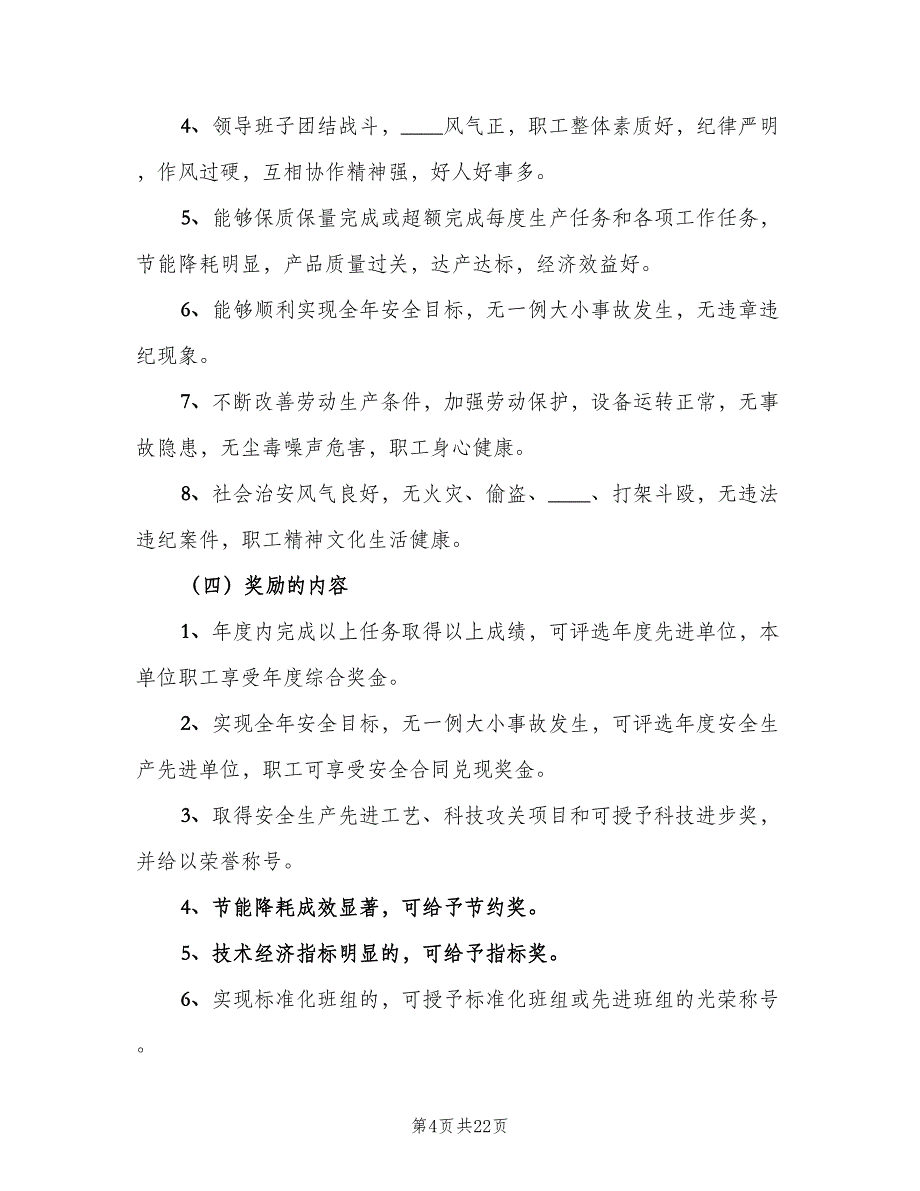 4、领导班子团结战斗，____风气正，职工整体素质好，纪律严明
，作风过硬，互相协作精神强，好人好事多。
5、能够保质保量完成或超额完成每度生产任务和各项工作任务，
节能降耗明显，产品质量过关，达产达标，经济效益好。
6、能够顺利实现全年安全目标，无一例大小事故发生，无违章违
纪现象。
7、不断改善劳动生产条件，加强劳动保护，设备运转正常，无事
故隐患，无尘毒噪声危害，职工身心健康。
8、社会治安风气良好，无火灾、偷盗、____、打架斗殴，无违法
违纪案件，职工精神文化生活健康。
（四）奖励的内容
1、年度内完成以上任务取得以上成绩，可评选年度先进单位，本
单位职工享受年度综合奖金。
2、实现全年安全目标，无一例大小事故发生，可评选年度安全生
产先进单位，职工可享受安全合同兑现奖金。
3、取得安全生产先进工艺、科技攻关项目和可授予科技进步奖，
并给以荣誉称号。
4、节能降耗成效显著，可给予节约奖。
5、技术经济指标明显的，可给予指标奖。
6、实现标准化班组的，可授予标准化班组或先进班组的光荣称号
。
第4页共22页